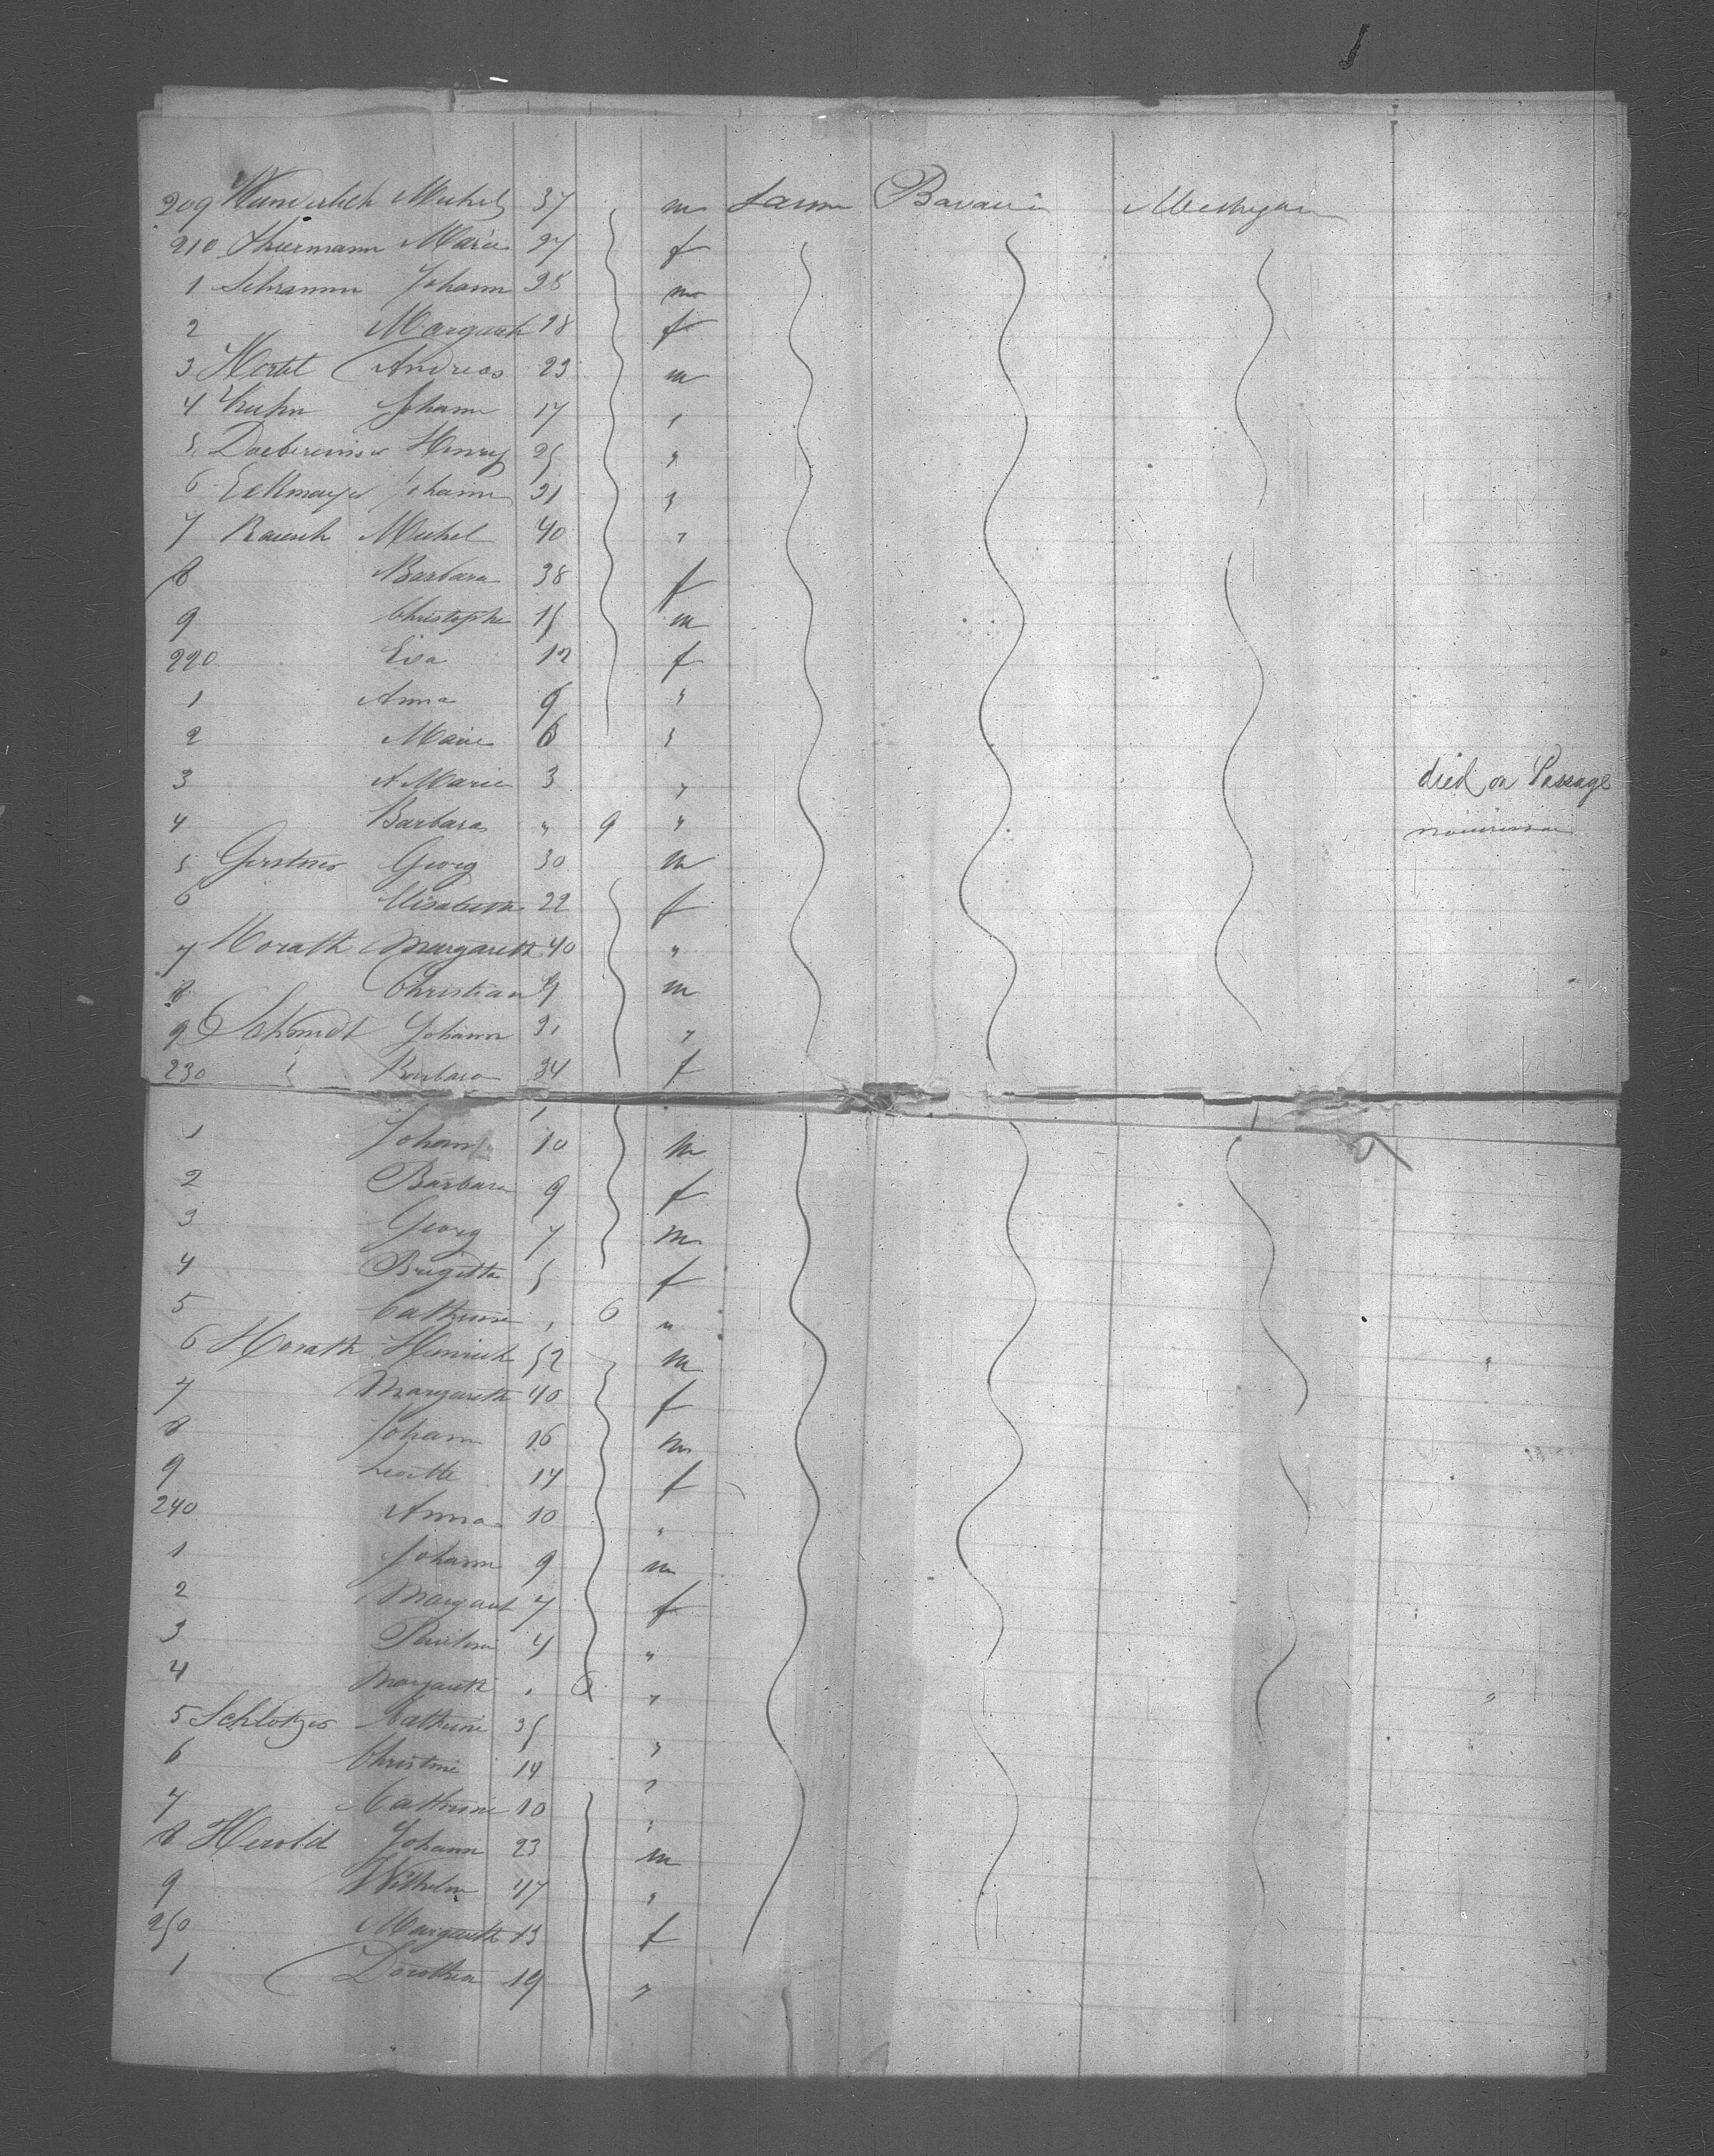 209 Wunderlich Michel 37 m Farmer Bavaria Michigan
210 Marie 27 f
1 Schramm Johann 28 m
2 Margareth 28 f
3 Hertel Andreas 23 m
4 Johann 17 "
5 Doebereiner Henry 25 "
6 Eckmayer Johann 31 "
7 Rausch Michel 40 "
8 Barbara 38 f
9 Christophe 15 m
220 Eva 12 f
1 Anna 9 "
2 Marie 6 "
3 A Marie 3 " died on Passage
4 Barbara " 9 "
5 Gerstner Georg 30 m
6 Elisabetha 22 f
7 Horath Margareth 40 "
8 Christian m
9 Schmidt Johann 31 "
230 " Barbara 34 f
1 Johann 10 m
2 Barbara 9 f
3 Georg 7 m
4 Brigitta 5 f
5 Catherine " 6 "
6 Horath Heinrich 52 m
7 Margareth 40 f
8 Johann 16 m
9 14 f
240 Anna 10 "
1 Johann 9 m
2 Margaret 7 f
3 4 "
4 Margareth " 6 "
5 Schlotzer Catherine 35 "
6 Christine 14 "
7 Catherine 10 "
8 Herold Johann 23 m
9 Wilhelm 47 "
250 Margareth 13 f
1 Dorothea 19 "